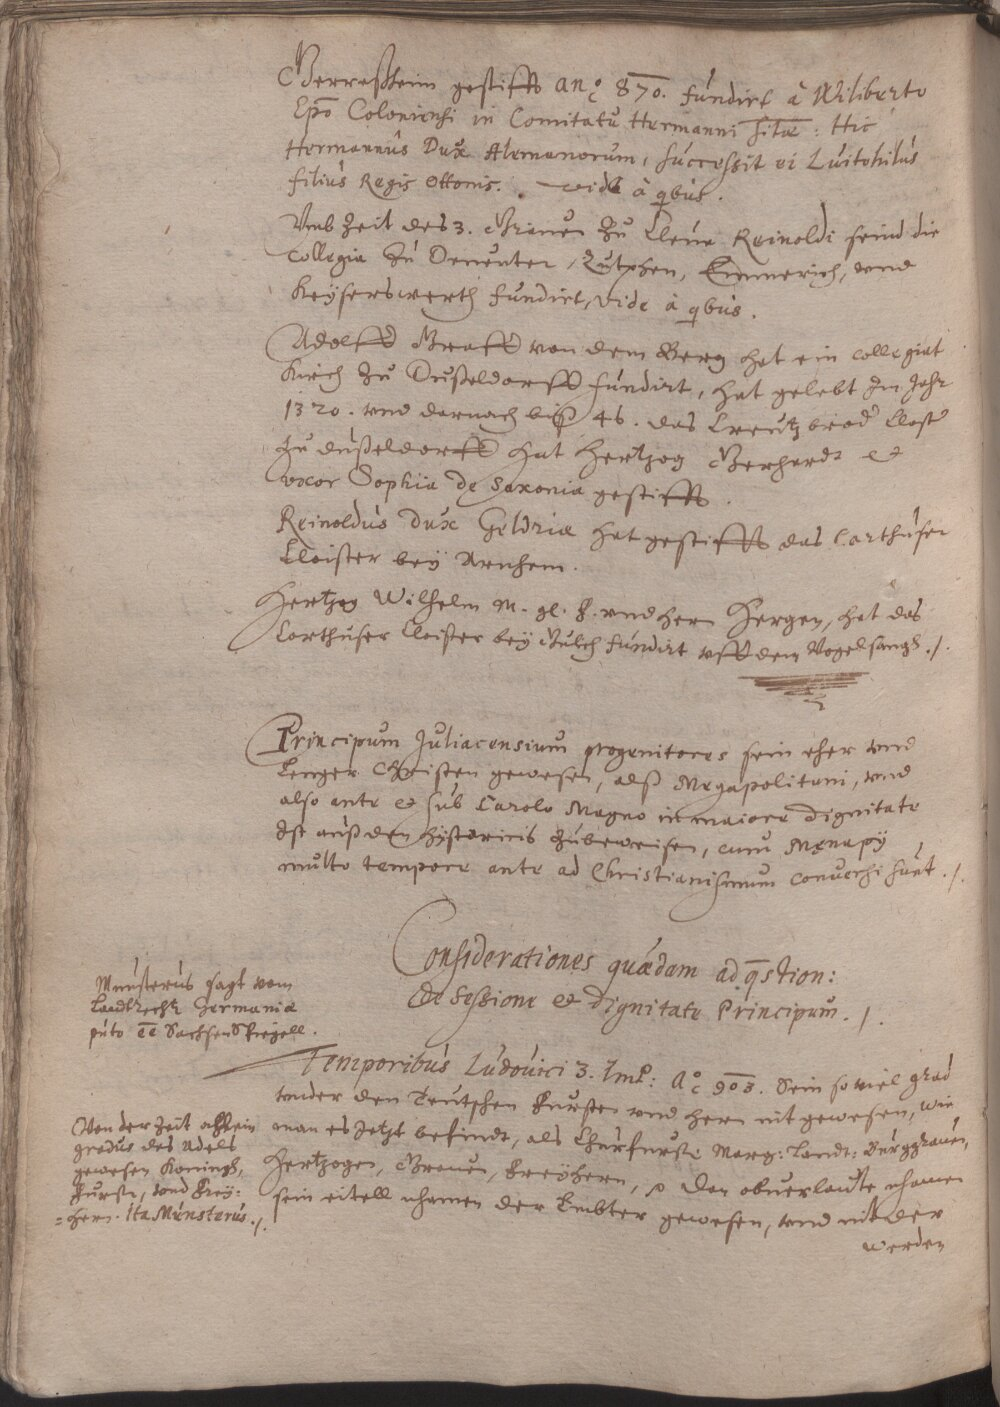 Gerreßheim gestifft anº 870. fundirt â Wiliberto
Epō Coloniensi in Comitatu Hermanni sitæ: Hic
Hermannus Dux Alemanorum, successit ei Luitohilus
filius Regis Ottonis. vide â qbus.
Vmb Zeit des 3. Grauen zu Cleue Reinoldi seind die
Collegia zu Deuenter, Zutphen, Emmerich, vnd
Keyserswerth fundirt, vide â qbus.
Adolff Graff von dem Berg hat ein collegiat
Kirch zu Dußeldorff fundirt, hat gelebt Im Jahr
1320. vnd darnach biß 46. das Creutzbrod Closter
zu dußeldorff hat Hertzog Gerhardt et
vxor Sophia de Saxonia gestifft.
Reinoldus Dux Geldriæ hat gestifft das Carthuser
Cloister bey Arnhem.
Hertzog Wilhelm M. gl. F. vnd hern Hergen, hat das
Carthuser Cloister bey Gulch fundirt vff dem Vogelsangh ./.
Principum Juliacensium progenitores sein eher vnd
Lenger Christen gewesen, alß Megapolitani, vnd
also ante et sub Carolo Magno in maiore dignitate
Ist auß den Hystoricis zubeweisen, cum Menapij
multo tempore ante ad Christianismum conuersi sunt ./.
Considerationes quædam ad qstion:
de Sessione et dignitate Principum ./.
Munsterus sagt vom
Landtrecht Germaniæ
puto ee Sachsen Spiegell.
Temporibus Ludouici 3. Imp: Aº 903. Sein so viel grad
vnder den Teutschen Fursten vnd hern nit gewesen, wie
man es Jetzt befindt, als Churfurst: Marg: Landt: Burggrauen,
Hertzogen, Grauen, Freyhern, Dan obuerlaute nhamen
sein eitell nhamen der Embter gewesen, vnd nit der
werden
Von der Zeit allein
gradus des Adels
gewesen Koningh,
Furst, vnd Frey:
=hern. Ita Munsterus ./.